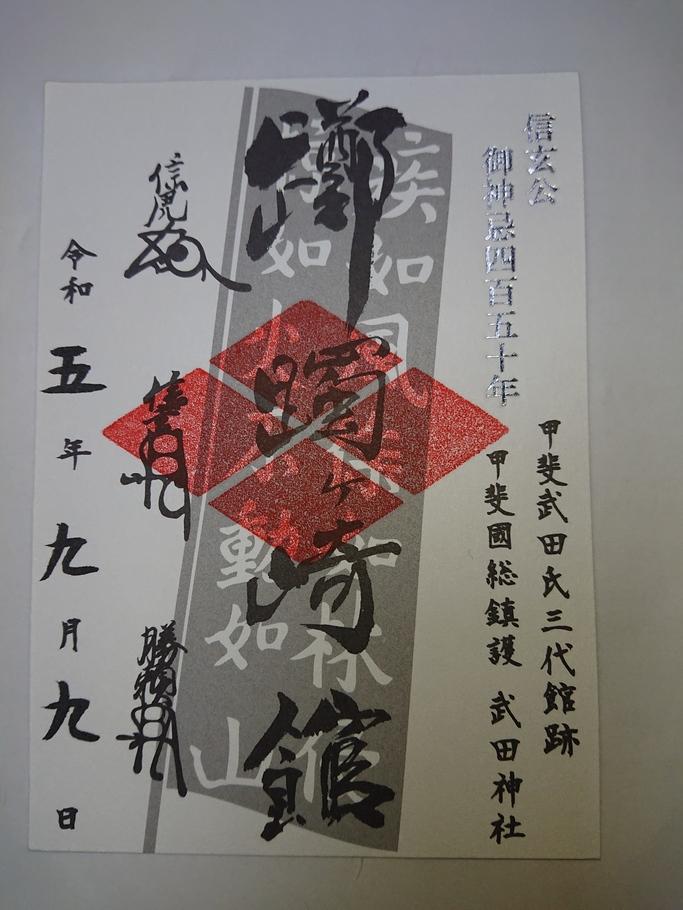 信玄公
御神忌四百五十年
甲斐武田氏三代館跡
甲斐國総鎮護 武田神社
疾如風徐如林侵
掠如火不動如山
躑躅ヶ崎館
信虎
勝頼
令和五年九月九日